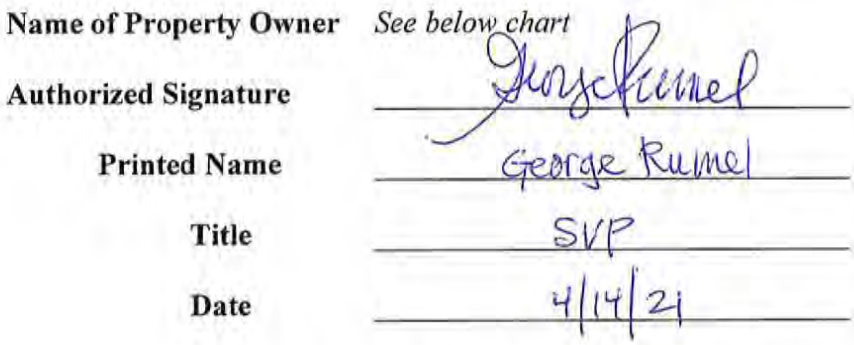 Name of Property Owner See below chart
Authorized Signature George Rumel
Printed Name George Rumel
Title SVP
Date 4/14/21